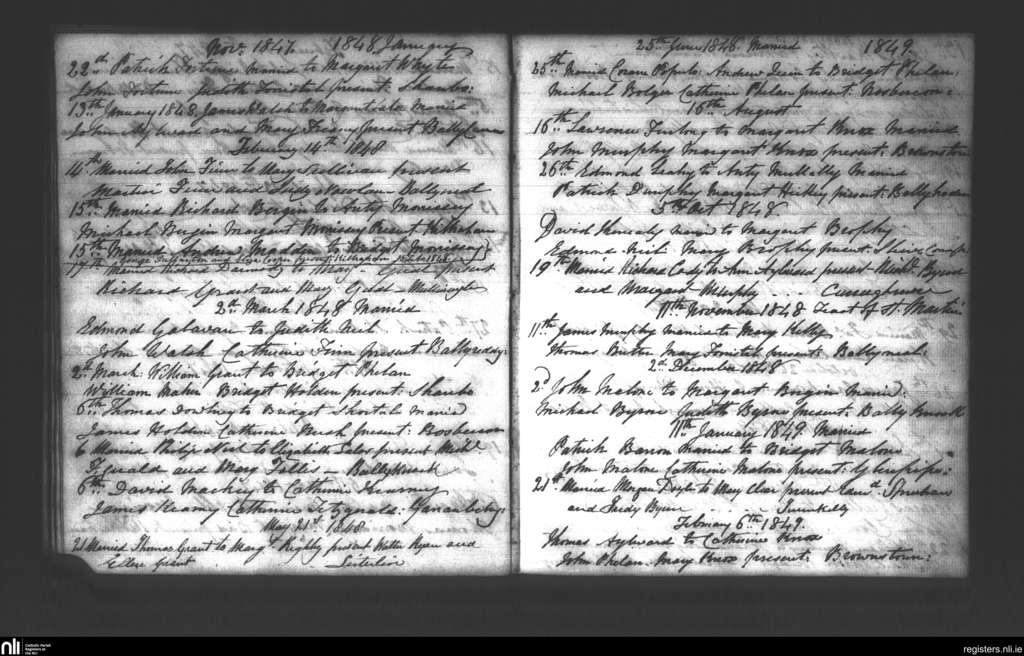 Nov. 1847 1848 January
22nd Patrick Fortune married to Margaret Whyte
John Fortune Judith present: Shanbo:
13th January 1848 James Walsh to Married
John Aylward and Mary present
February 14th 1848
14th Married John Finn to Mary Sullivan present
Martin Finn and Judy Newlan
15th Married Richard Bergin to Anty Morrissey
Michael Bergin Margaret Morrissey Present Kilkehan
15th Married Andrew Madden to Bridget Morrissey
George and Eliza present
17th Married Richard to Mary present
Richard Grant and Mary
2nd March 1848 Married
Edmond Galavan to Judith Neil
John Walsh Catherine Finn present Ballyreddy:
2nd March William Grant to Bridget Phelan
William Maher Bridget Holden present: Shanbo
6th Thomas Downey to Bridget Shortale Married
James Holden Catherine present: Rosbercon
6 Married Philip Neil to Elizabeth present Michl
and Mary Fallis - Ballyknock
6th David Mackey to Catherine Kearney
James Kearney Catherine Fitzgerald:
May 21st 1848
21 Married Thomas Grant to Margt present Walter Ryan and
Ellen Grant
25th June 1848 Married 1849.
25th Married Andrew to Bridget Phelan,
Michael Bolger Catherine Phelan present. Rosbercon:
16th August
16th Lawrence Furlong to Margaret Knox Married
John Murphy Margaret Knox present: Brownstown
26th Edmond Leahy to Anty Mullally Married
Patrick Dunphy Margaret Hickey present:
5th Oct 1848
David to Margaret Brophy
Edmond Neil Mary Brophy present:
19th Married Richard Cody to Ann Aylward present Michl Byrne
and Margaret Murphy
11th November 1848 Feast of St Martin
11th James Murphy married to Mary Kelly
Thomas Butler Mary present: Ballyneal:
2nd December 1848
2nd John Malone to Margaret Bergin Married
Michael Byrne Judith Byrne present: Ballyknock
11th January 1849 Married
Patrick Barron Married to Bridget Malone
John Malone Catherine Malone present:
21st Married Morgan Doyle to Mary Clear present
and Judy Byrne
February 6th 1849.
Thomas Aylward to Catherine Knox
John Phelan Mary Knox present: Brownstown:
nli
Catholic Parish
Registers at
the NLI
registers.nli.ie